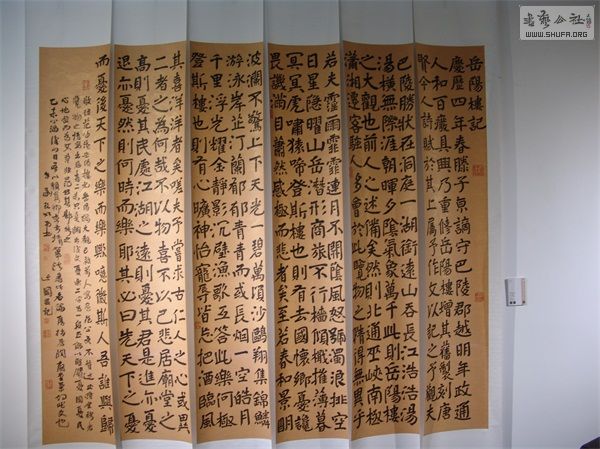 岳陽樓記
慶曆四年春滕子京謫守巴陵郡越明年政通
人和百廢具興乃重修岳陽樓增其舊製刻唐
賢今人詩賦於其上屬予作文以記之予觀夫
巴陵勝狀在洞庭一湖銜遠山吞長江浩浩湯
湯橫無際涯朝暉夕陰氣象萬千此則岳陽樓
之大觀也前人之述備矣然則北通巫峽南極
瀟湘遷客騷人多會於此覽物之情得無異乎
若夫霪雨霏霏連月不開陰風怒號濁浪排空
日星隱曜山岳潛形商旅不行檣傾楫摧薄暮
冥冥虎嘯猿啼登斯樓也則有去國懷鄉憂讒
畏譏滿目蕭然感極而悲者矣至若春和景明
波瀾不驚上下天光一碧萬頃沙鷗翔集錦鱗
游泳岸芷汀蘭郁郁青青而或長煙一空皓月
千里浮光耀金靜影沉璧漁歌互答此樂何極
登斯樓也則有心曠神怡寵辱皆忘把酒臨風
其喜洋洋者矣嗟夫予嘗求古仁人之心或異
二者之為何哉不以物喜不以己悲居廟堂之
高則憂其民處江湖之遠則憂其君是進亦憂
退亦憂然則何時而樂耶其必曰先天下之憂
而憂後天下之樂而樂歟噫微斯人吾誰與歸
書藝公社
WWW.SHUFA.ORG